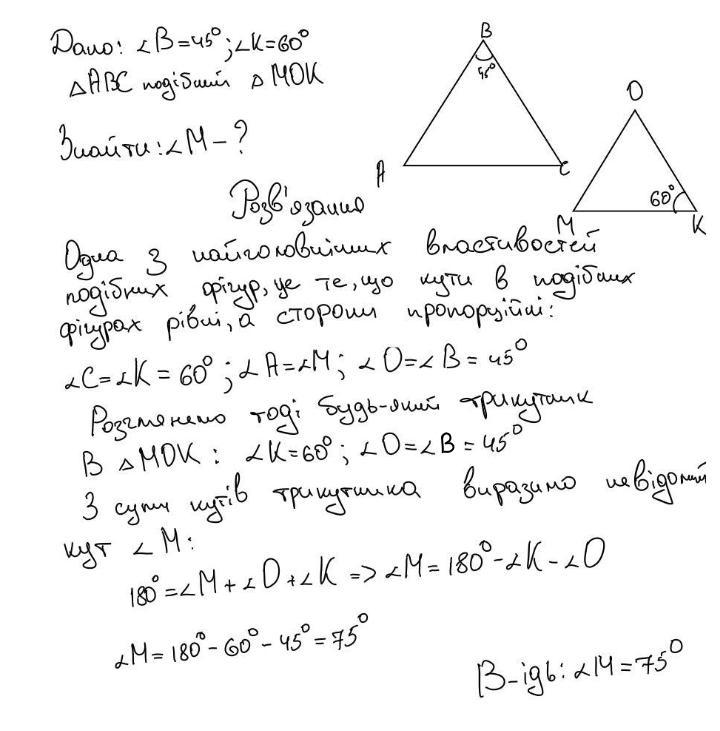 Дано: ∠B=45°; ∠K=60°
△ABC подібний △MOK
Знайти: ∠M-?
B
45°
A
C
O
60°
M
K
Розв'язання
Одна з найголовніших властивостей
подібних фігур, це те, що кути в подібних
фігурах рівні, а сторони пропорційні:
∠C=∠K=60°; ∠A=∠M; ∠O=∠B=45°
Розглянемо тоді будь-який трикутник
В △MOK: ∠K=60°; ∠O=∠B=45°
З суми кутів трикутника виразимо невідомий
кут ∠M:
180°=∠M+∠O+∠K => ∠M=180°-∠K-∠O
∠M=180°-60°-45°=75°
В-ідь: ∠M=75°